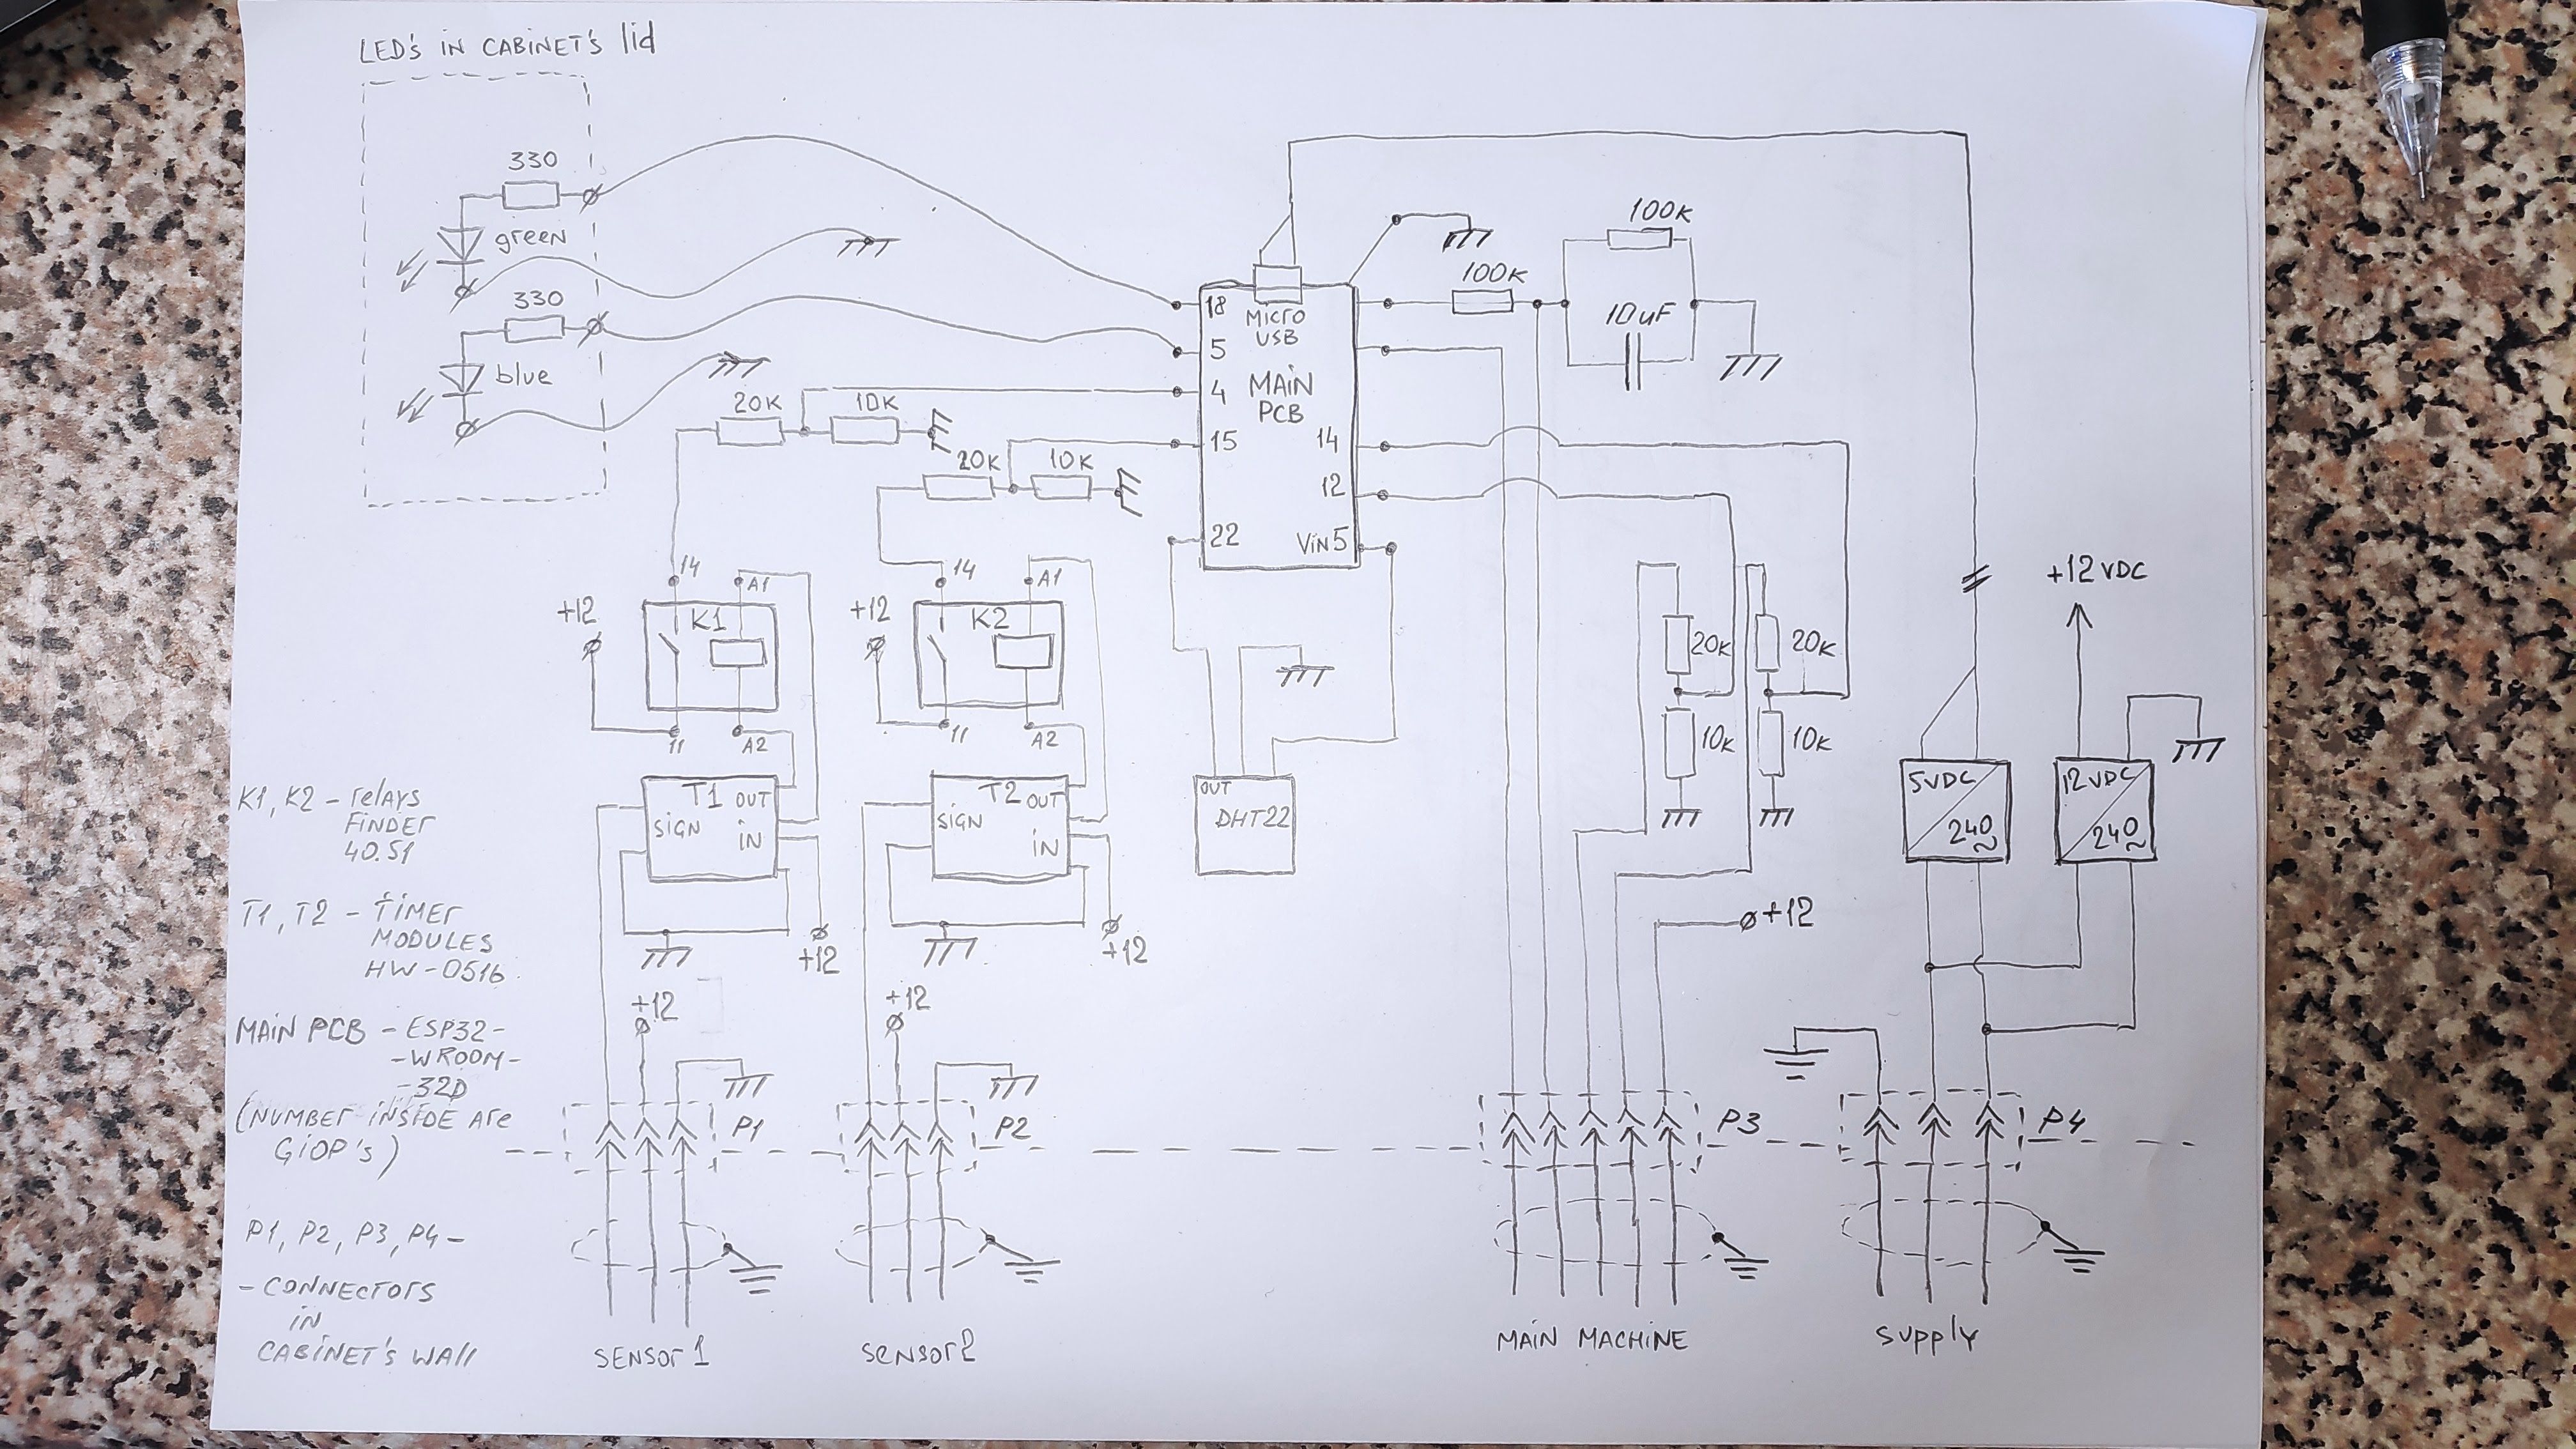 LED's in CABiNET's lid
330
green
330
blue
18
MiCrO
USB
5
MAiN
PCB
4
15
14
12
22
ViN5
100K
100K
10uF
20K
10K
20K
10K
14
A1
+12
K1
11
A2
14
A1
+12
K2
11
A2
T1 OUT
SiGN
iN
+12
T2 OUT
SiGN
iN
+12
OUT
DHT22
20K
20K
10K
10K
+12
+12 VDC
5VDC
240~
12VDC
240~
K1, K2 - relAys
FiNDEr
40.51
T1, T2 - TiMEr
MODULES
HW-0516
MAiN PCB - ESP32-
-WROOM-
-32D
(NUMBEr iNSiDE Are
GiOP's)
P1, P2, P3, P4 -
- CONNECTOrs
iN
CABiNET's WAll
+12
P1
+12
P2
P3
P4
SENSOr 1
SENSOr 2
MAiN MACHiNE
Supply